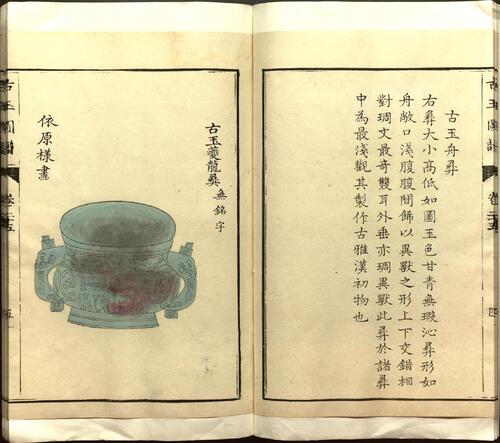 古玉舟彞
右彞大小高低如圖玉色甘青無瑕沁彞形如
舟敞口淺腹腹間飾以異獸之形上下交錯相
對琱文最奇雙耳外垂亦琱異獸此彞於諸彞
中為最淺觀其製作古雅漢初物也
古玉圖譜
卷二十五
古玉夔龍彞無銘字
依原樣畫
古玉圖譜
卷二十五